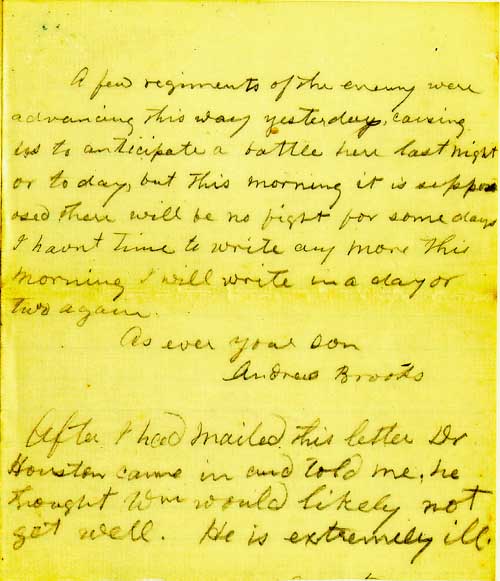 A few regiments of the enemy were
advancing this way yesterday, causing
us to anticipate a battle here last night
or today, but this morning it is suppos
osed there will be no fight for some days
I havn't time to write any more this
morning I will write in a day or
two again.
As ever your son
Andrew Brooks
After I had mailed this letter Dr
Houston came in and told me, he
thought Wm would likely not
get well. He is extremely ill.